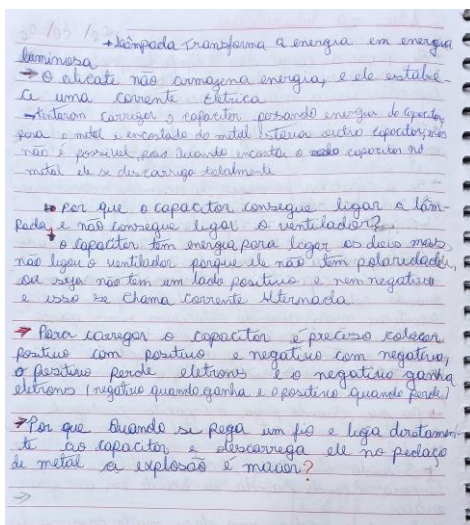 20/05/22
→ Lâmpada Transforma a energia em energia
luminosa
→ O alicate não armazena energia, e ele estabele-
ce uma corrente Elétrica
→ tentaram carregar o capacitor passando energia do capacitor
para o metal e encostado do metal estaria outro capacitor, mas
não é possivel, pois quando encosta o capacitor no
metal ele se descarrega totalmente
Por que o capacitor consegue ligar a lâm-
pada e não consegue ligar o ventilador?
o capacitor tem energia para ligar os dois mas
não ligou o ventilador porque ele não tem polaridade,
ou seja não tem um lado positivo e nem negativo
e isso se chama corrente Alternada
→ Para carregar o capacitor é preciso colocar
positivo com positivo e negativo com negativo,
o positivo perde eletrons e o negativo ganha
eletrons (negativo quando ganha e o positivo quando perde)
→ Por que Quando se pega um fio e liga diretamen-
te ao capacitor e descarrega ele no pedaço
de metal a explosão é maior?
→